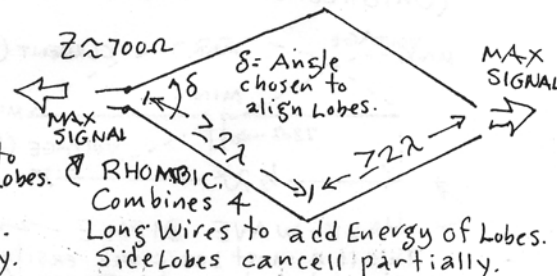 Z≈700Ω
δ
δ= Angle
chosen to
align Lobes.
MAX
SIGNAL
MAX
SIGNAL
>2λ
>2λ
to
Lobes.
RHOMBIC.
Combines 4
Long Wires to add Energy of Lobes.
SideLobes cancell partially.
y.